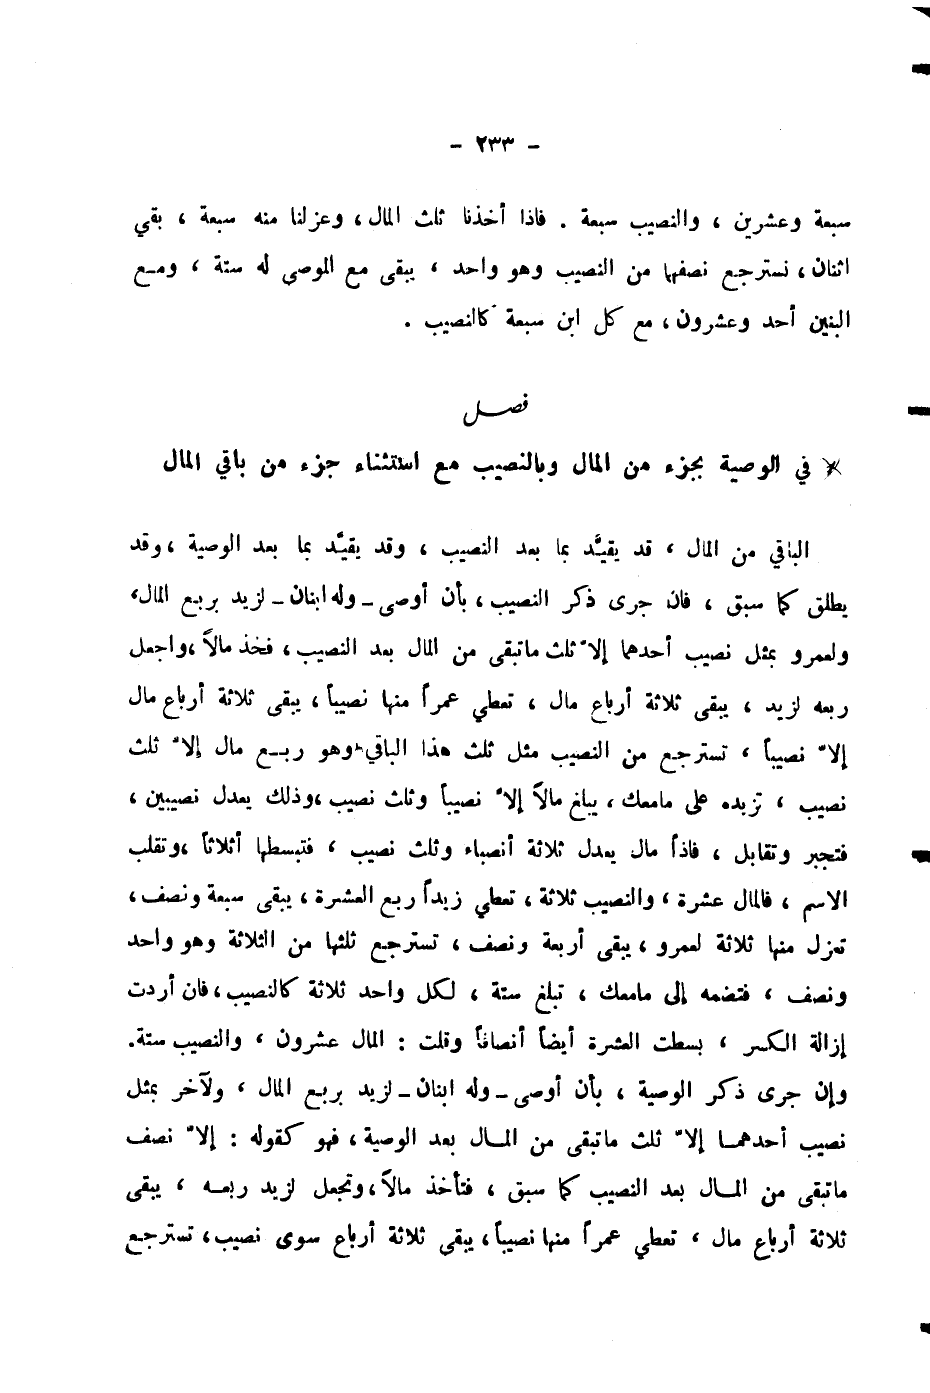 - ٢٣٣ -
سبعة وعشرين ، والنصيب سبعة . فاذا أخذنا ثلث المال ، وعزلنا منه سبعة ، بقي
اثنان ، نسترجع نصفها من النصيب وهو واحد ، يبقى مع الموصى له ستة ، ومع
البنين أحد وعشرون ، مع كل ابن سبعة كالنصيب .
فصل
* في الوصية بجزء من المال وبالنصيب مع استثناء جزء من باقي المال
الباقي من المال ، قد يقيَّد بما بعد النصيب ، وقد يقيَّد بما بعد الوصية ، وقد
يطلق كما سبق ، فان جرى ذكر النصيب ، بأن أوصى ـ وله ابنان ـ لزيد بربع المال ،
ولعمرو بمثل نصيب أحدهما إلاّ ثلث ماتبقى من المال بعد النصيب ، فخذ مالاً ، واجعل
ربعه لزيد ، يبقى ثلاثة أرباع مال ، تعطي عمراً منها نصيباً ، يبقى ثلاثة أرباع مال
إلاّ نصيباً ، تسترجع من النصيب مثل ثلث هذا الباقي، وهو ربع مال إلاّ ثلث
نصيب ، تزيده على مامعك ، يبلغ مالاً إلاّ نصيباً وثلث نصيب ، وذلك يعدل نصيبين ،
فتجبر وتقابل ، فاذاً مال يعدل ثلاثة أنصباء وثلث نصيب ، فتبسطها أثلاثاً ، وتقلب
الاسم ، فالمال عشرة ، والنصيب ثلاثة ، تعطي زيداً ربع العشرة ، يبقى سبعة ونصف ،
تعزل منها ثلاثة لعمرو ، يبقى أربعة ونصف ، تسترجع ثلثها من الثلاثة وهو واحد
ونصف ، فتضمه إلى مامعك ، تبلغ ستة ، لكل واحد ثلاثة كالنصيب ، فان أردت
إزالة الكسر ، بسطت العشرة أيضاً أنصافاً وقلت : المال عشرون ، والنصيب ستة.
وإن جرى ذكر الوصية ، بأن أوصى ـ وله ابنان ـ لزيد بربع المال ، ولآخر بمثل
نصيب أحدهما إلاّ ثلث ماتبقى من المال بعد الوصية ، فهو كقوله : إلاّ نصف
ماتبقى من المال بعد النصيب كما سبق ، فتأخذ مالاً ، وتجعل لزيد ربعه ، يبقى
ثلاثة أرباع مال ، تعطي عمراً منها نصيباً ، يبقى ثلاثة أرباع سوى نصيب ، تسترجع